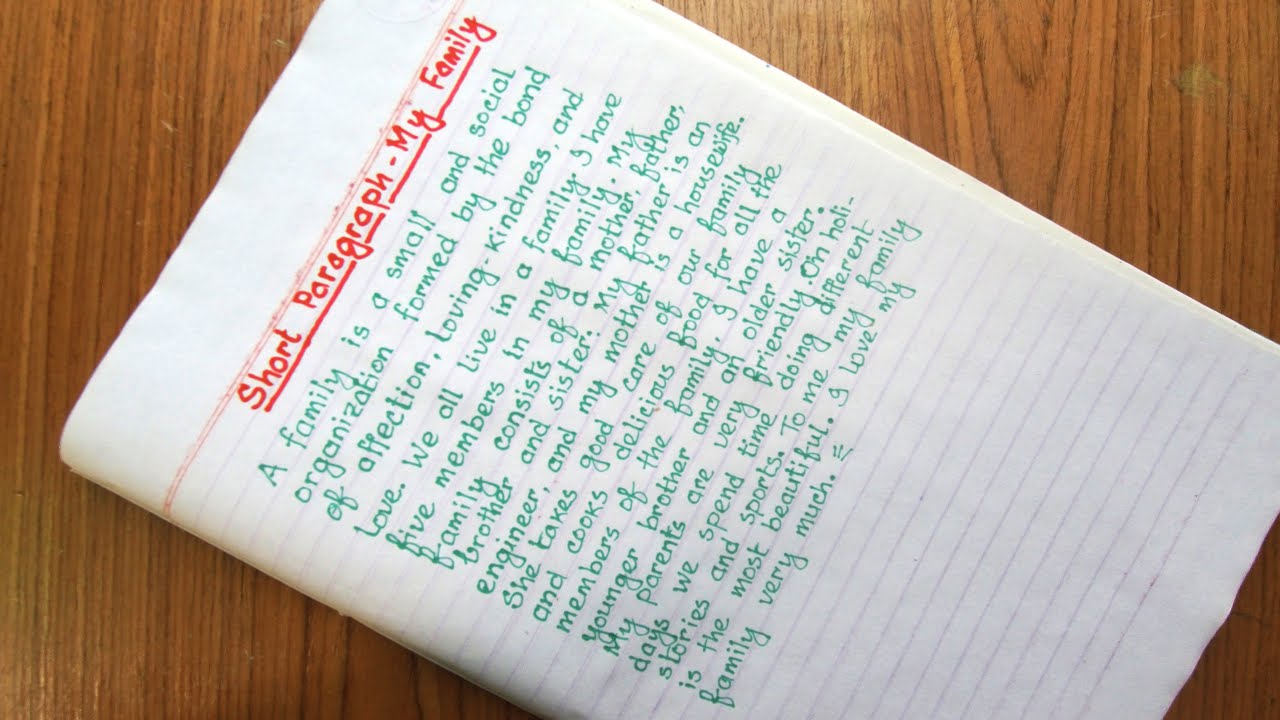 Short Paragraph - My Family
A family is a small and social
organization formed by the bond
of affection, loving-kindness, and
love. We all live in a family I have
five members in my family. My
family consists of a mother, father,
brother and sister. My father is an
engineer, and my mother is a housewife.
She takes good care of our family
and cooks delicious food for all the
members of the family. I have a
younger brother and an older sister.
My parents are very friendly. On holi-
days we spend time doing different
stories and sports. To me my family
is the most beautiful. I love my
family very much.